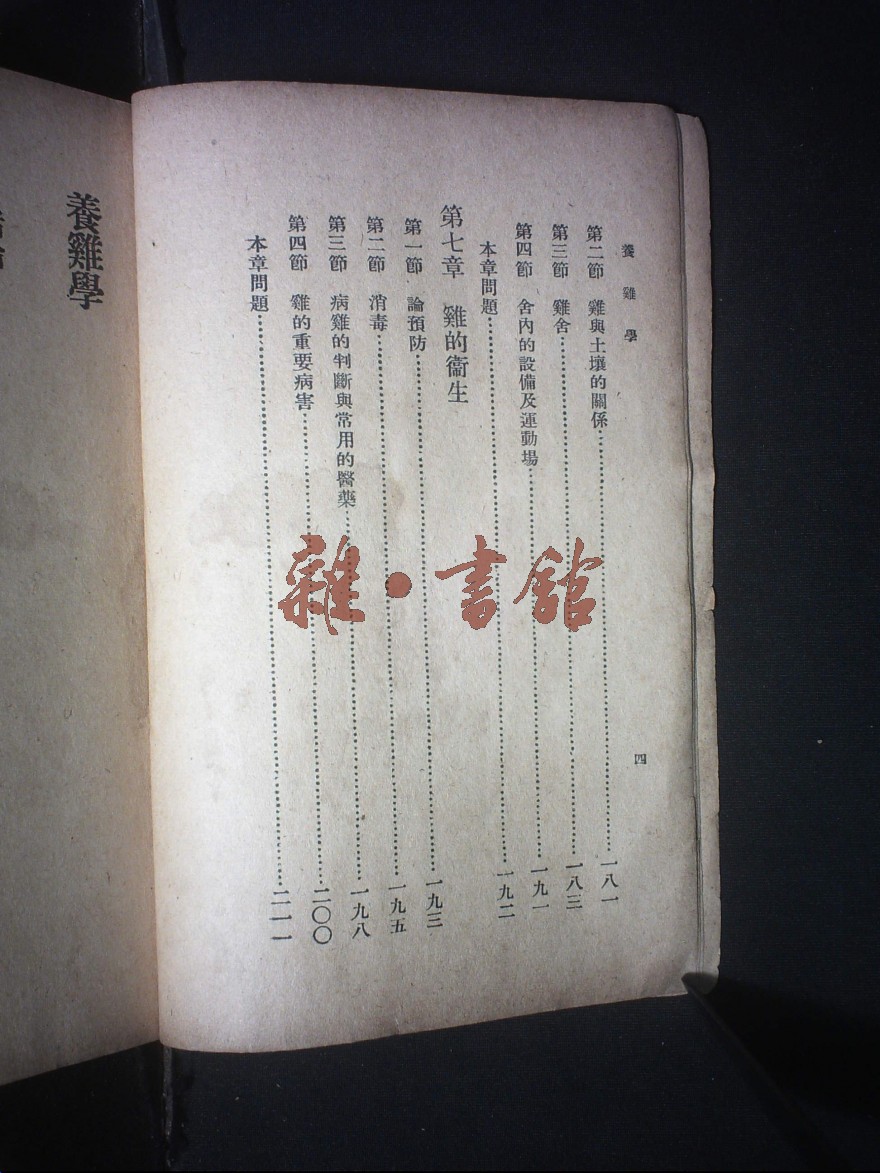 養雞學
四
第二節 雞與土壤的關係…一八一
第三節 雞舍…一八三
第四節 舍內的設備及運動場…一九一
本章問題…一九二
第七章 雞的衞生
第一節 論預防…一九三
第二節 消毒…一九五
第三節 病雞的判斷與常用的醫藥…一九八
第四節 雞的重要病害…二〇〇
本章問題…二一一
養雞學
雜·書館